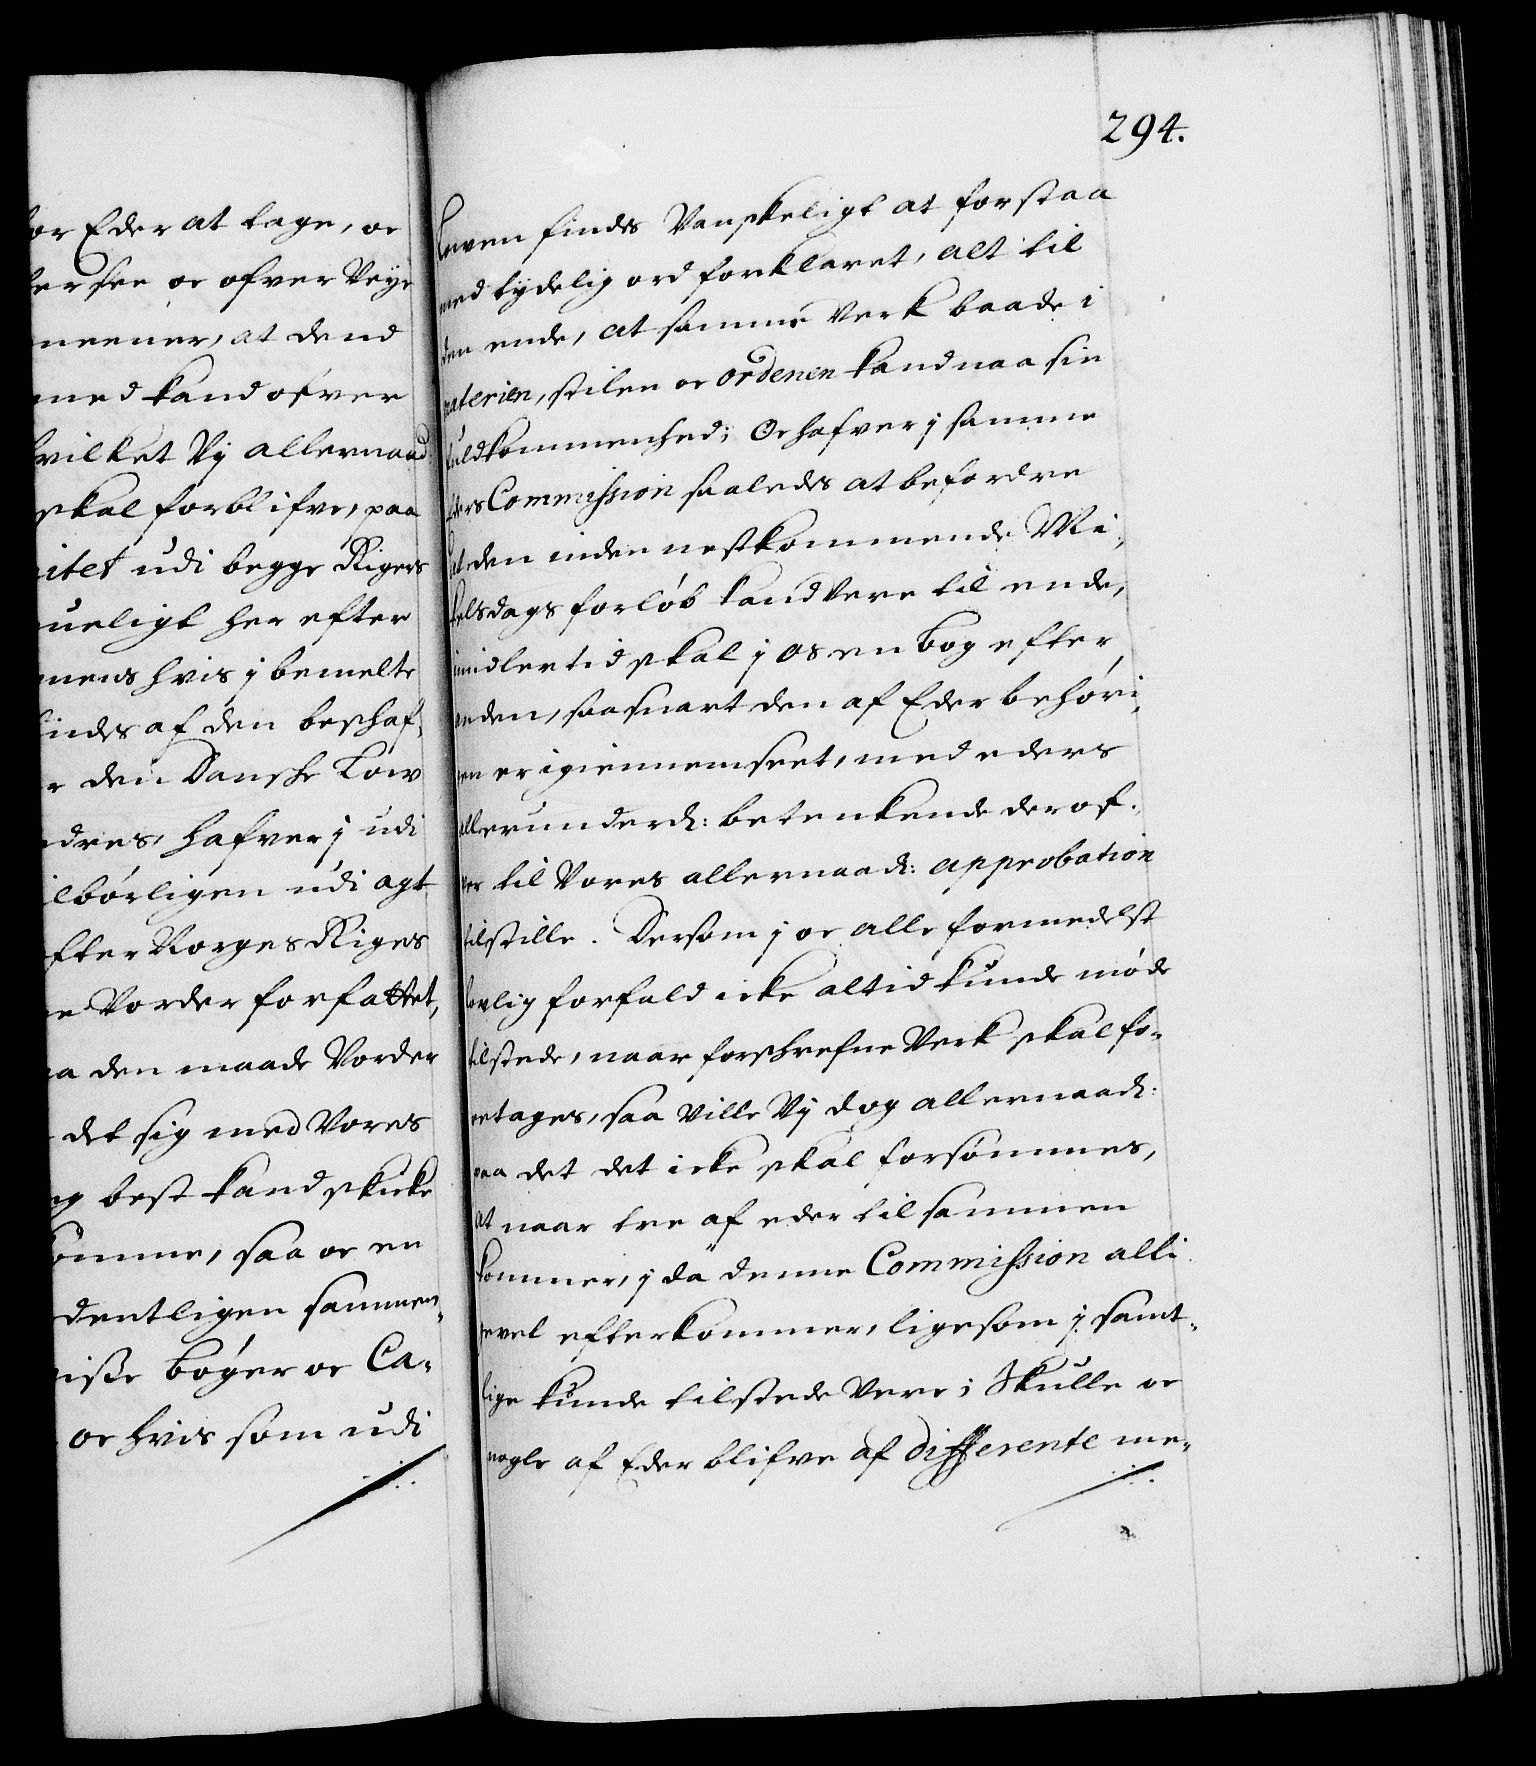 or Eder at tage, oc
ersee oc ofver Veye
meener, at dend
med kand ofver
hvilket Vy allernaad
skal forblifve, paa
itet udi begge Rigers
ueligt her efter
mens hvis j bemelte
findes af den beschaf,
r den Danske Low
dres, hafver j udi
ilbørligen udi agt
fter Norges Riges
e Vorder forfattet,
a den maade Vorder
det sig med Vores
g best kand skicke
omme, saa oc en
dentligen sammen,
visse bøger oc Ca,
oc hvis som udi
294.
Lowen findes Vanskeligt at forstaa
med tydelig ord forklaret, alt til
den ende, at samme Verk baade i
materien, stilen oc ordenen kand naa sin
fuldkommenhed; Oc hafver j samme
Eders Commission saaledes at befordre
at den inden nestkommende Mi,
kelsdags forløb kand Vere til ende,
imidlertid skal j os en bog efter
anden, saasnart den af Eder behøri,
gen er igiennemseet, med eders
allerunderd: betenkende derof,
ver til Vores allernaad: approbation
tilstille. Dersom j oc alle formedelst
lovlig forfald icke altid kunde møde
tilstede, naar forschrefne Verk skal fo,
retages, saa Ville Vy dog allernaad:
paa det det icke skal forsømmes,
at naar tre af eder tilsammen
kommer, j da denne Commission alli
gevel efterkommer, ligesom j samt,
lige kunde tilstede Vere; Skulle oc
nogle af Eder blifve af differente me,